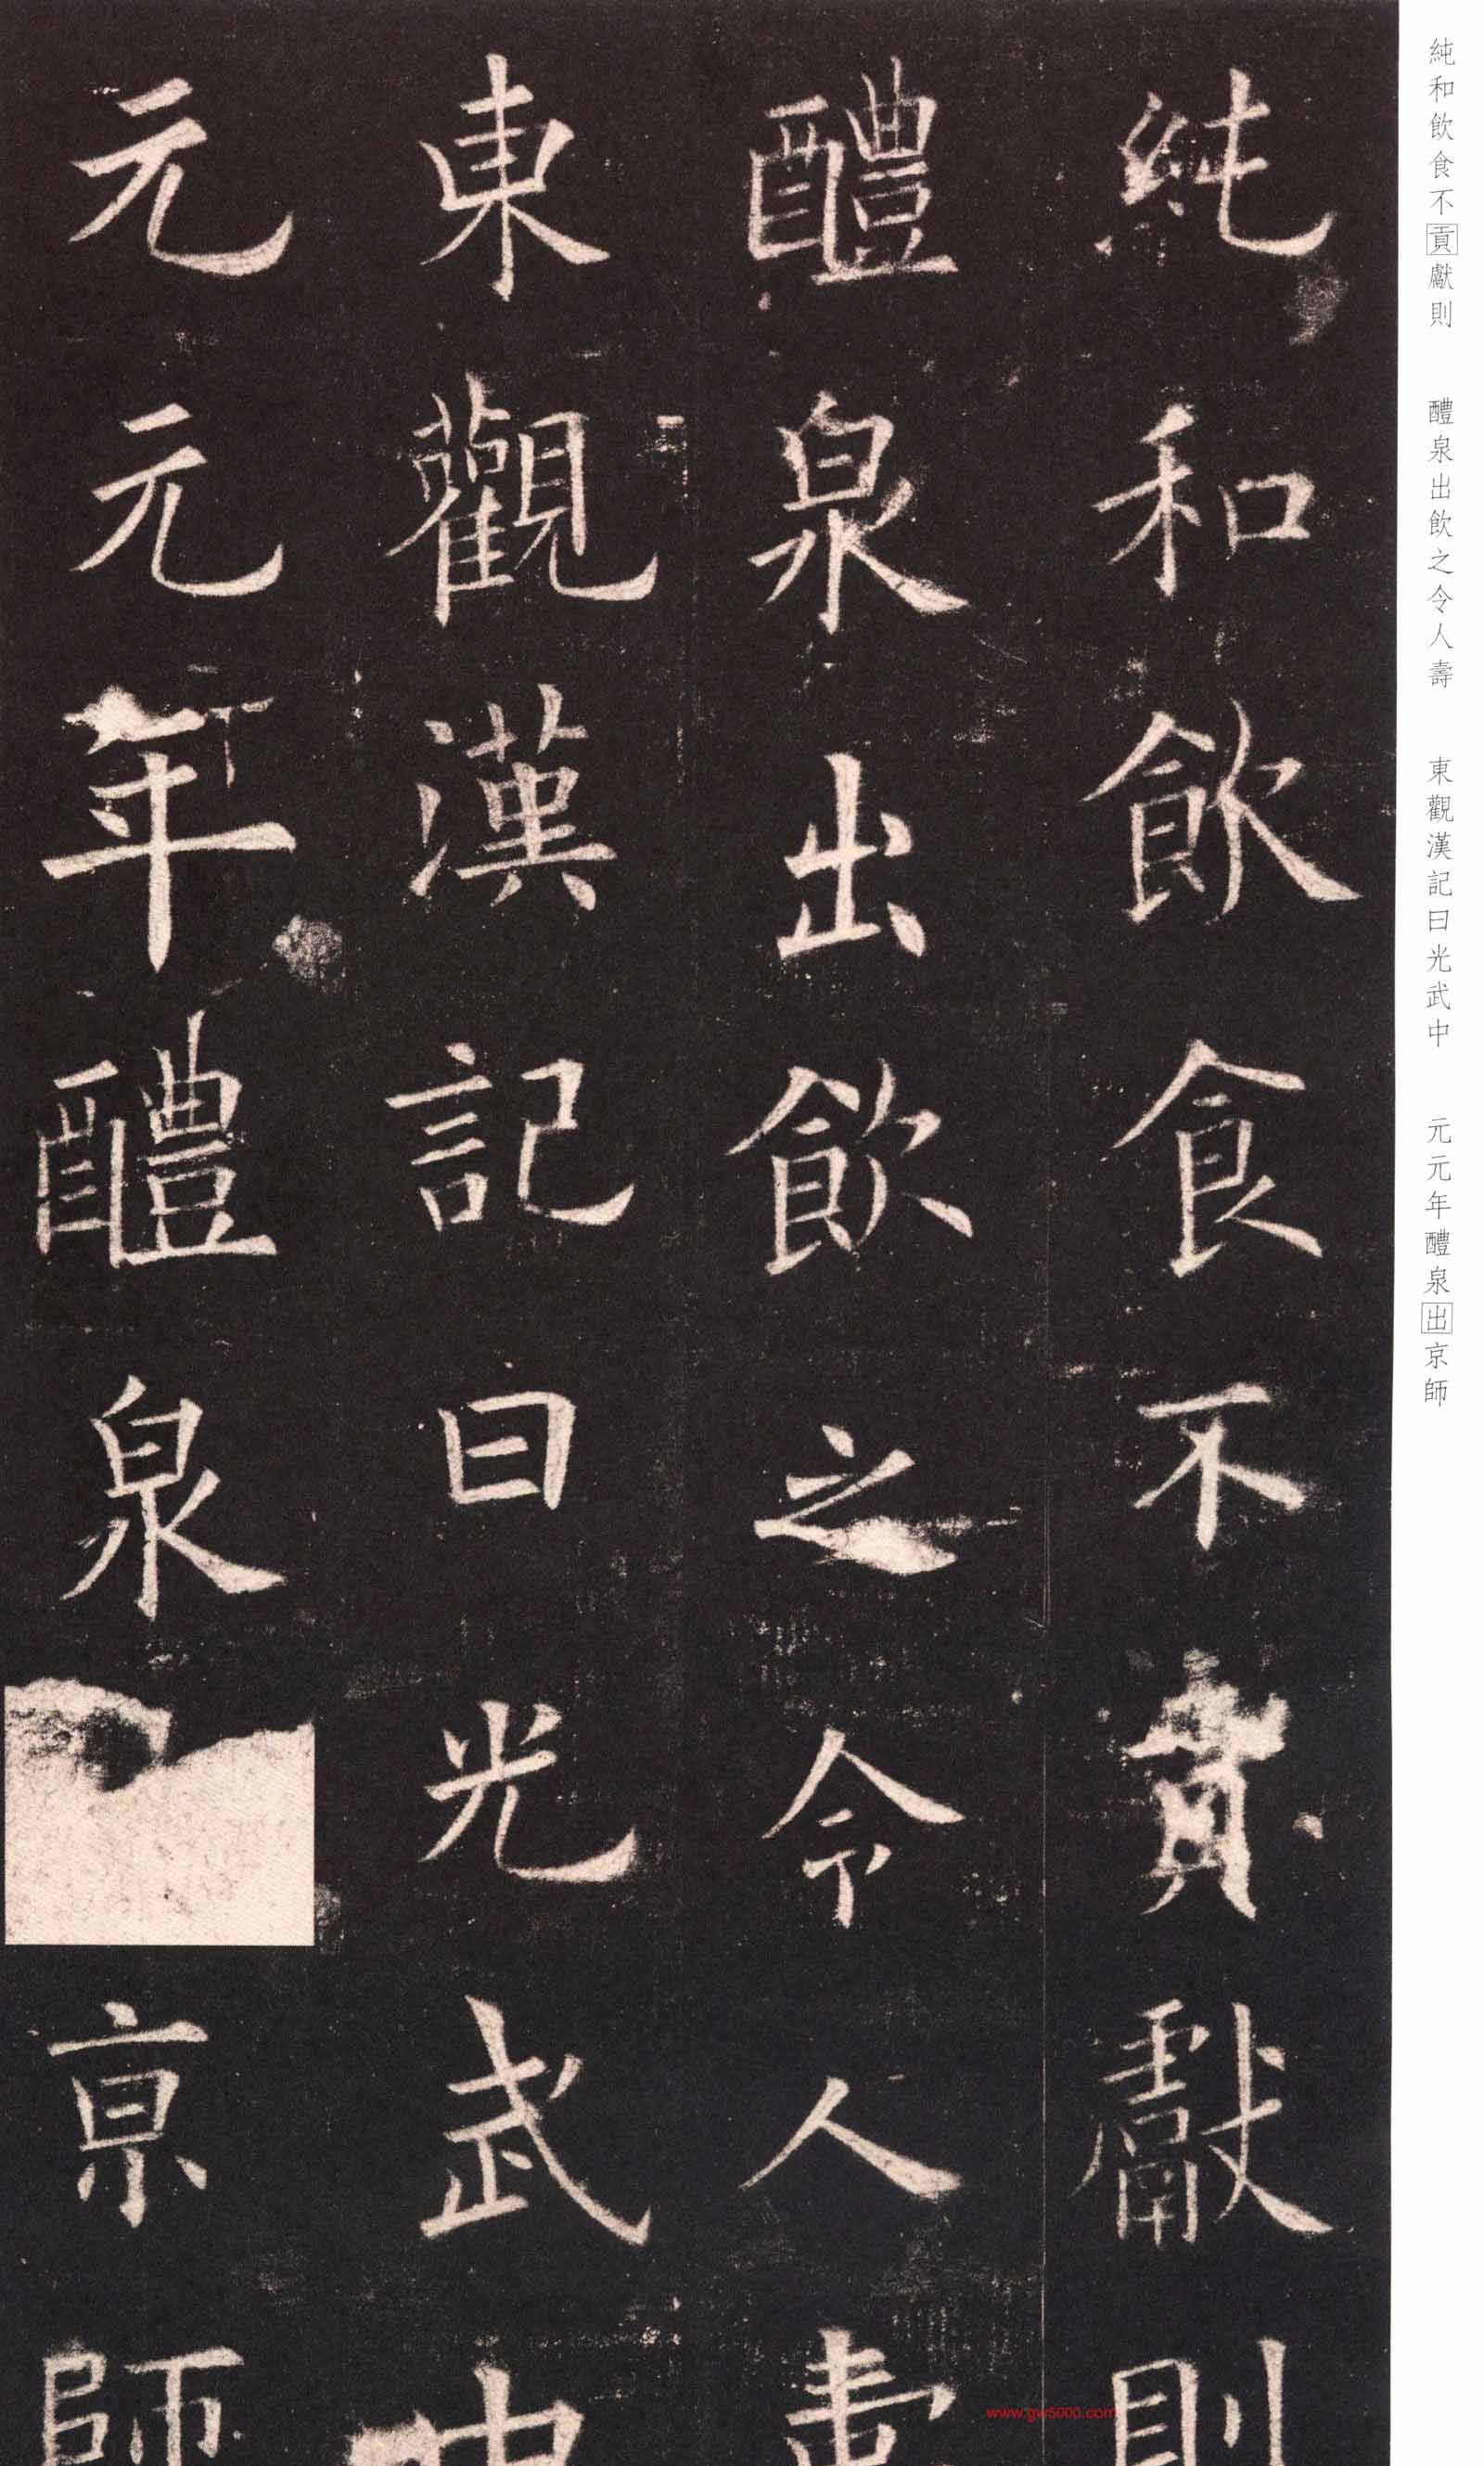 純和飲食不貢獻則
醴泉出飲之令人壽
東觀漢記曰光武中
元元年醴泉京師
純和飲食不貢獻則 醴泉出飲之令人壽 東觀漢記曰光武中 元元年醴泉出京師
www.gw5000.com